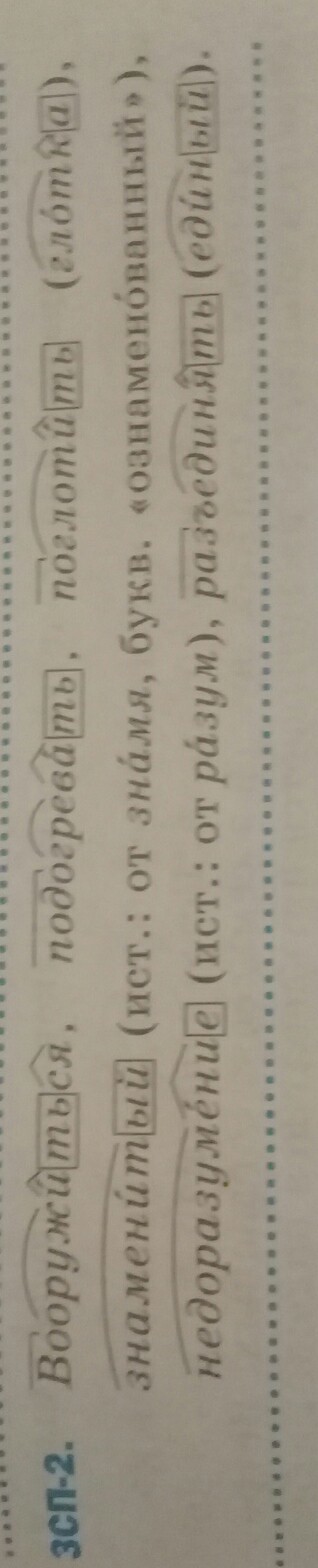 ЗСП-2. Вооружи́ться, подогрева́ть, поглоти́ть (гло́тка),
знамени́тый (ист.: от зна́мя, букв. «ознамено́ванный»),
недоразуме́ние (ист.: от ра́зум), разъединя́ть (еди́ный).